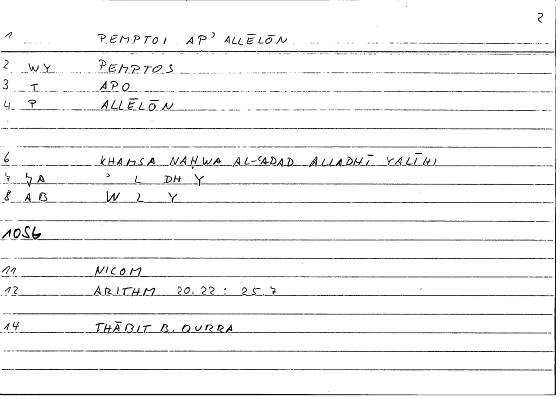 2
1 PEMPTOI AP' ALLĒLŌN
2 WY PEMPTOS
3 T APO
4 P ALLĒLŌN
6 KHAMSA NAḤWA AL-ʿADAD ALLADHĪ YALĪHI
7 A ʾ L DH Y
8 AB W L Y
1056
11 NICOM
12 ARITHM 20.22 : 25.7
14 THĀBIT B. QURRA